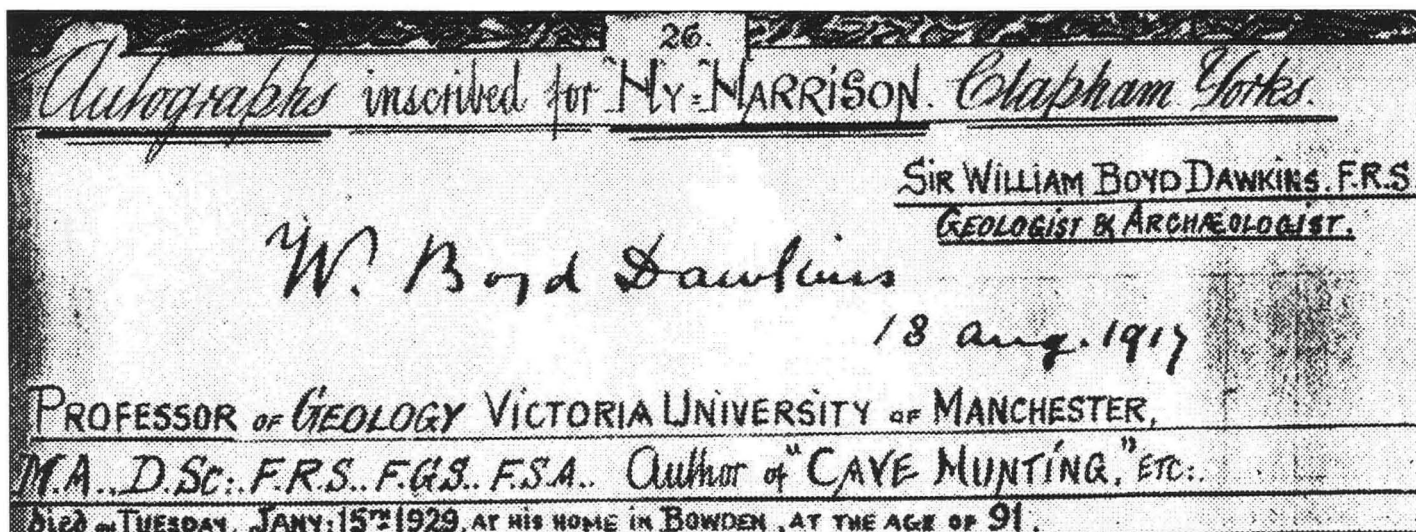 26.
Autographs inscribed for Hy=HARRISON. Clapham Yorks.
SIR WILLIAM BOYD DAWKINS. F.R.S
GEOLOGIST & ARCHÆOLOGIST.
W. Boyd Dawkins
18 Aug. 1917
PROFESSOR OF GEOLOGY VICTORIA UNIVERSITY OF MANCHESTER,
M.A.. D.Sc:. F.R.S.. F.G.S.. F.S.A.. Author of "CAVE HUNTING," ETC:.
Died on TUESDAY, JANY: 15TH 1929, AT HIS HOME IN BOWDEN, AT THE AGE OF 91.